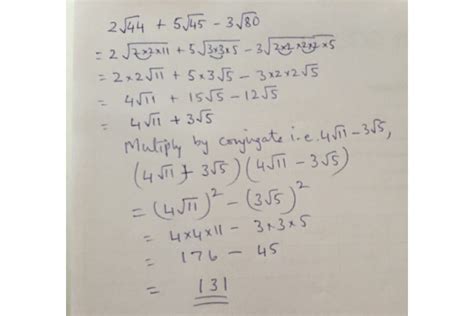 2√44 + 5√45 - 3√80
= 2√2×2×11 + 5√3×3×5 - 3√2×2×2×2×5
= 2×2√11 + 5×3√5 - 3×2×2√5
= 4√11 + 15√5 - 12√5
= 4√11 + 3√5
Multiply by conjugate i.e. 4√11 - 3√5,
(4√11 + 3√5) (4√11 - 3√5)
= (4√11)² - (3√5)²
= 4×4×11 - 3×3×5
= 176 - 45
= 131